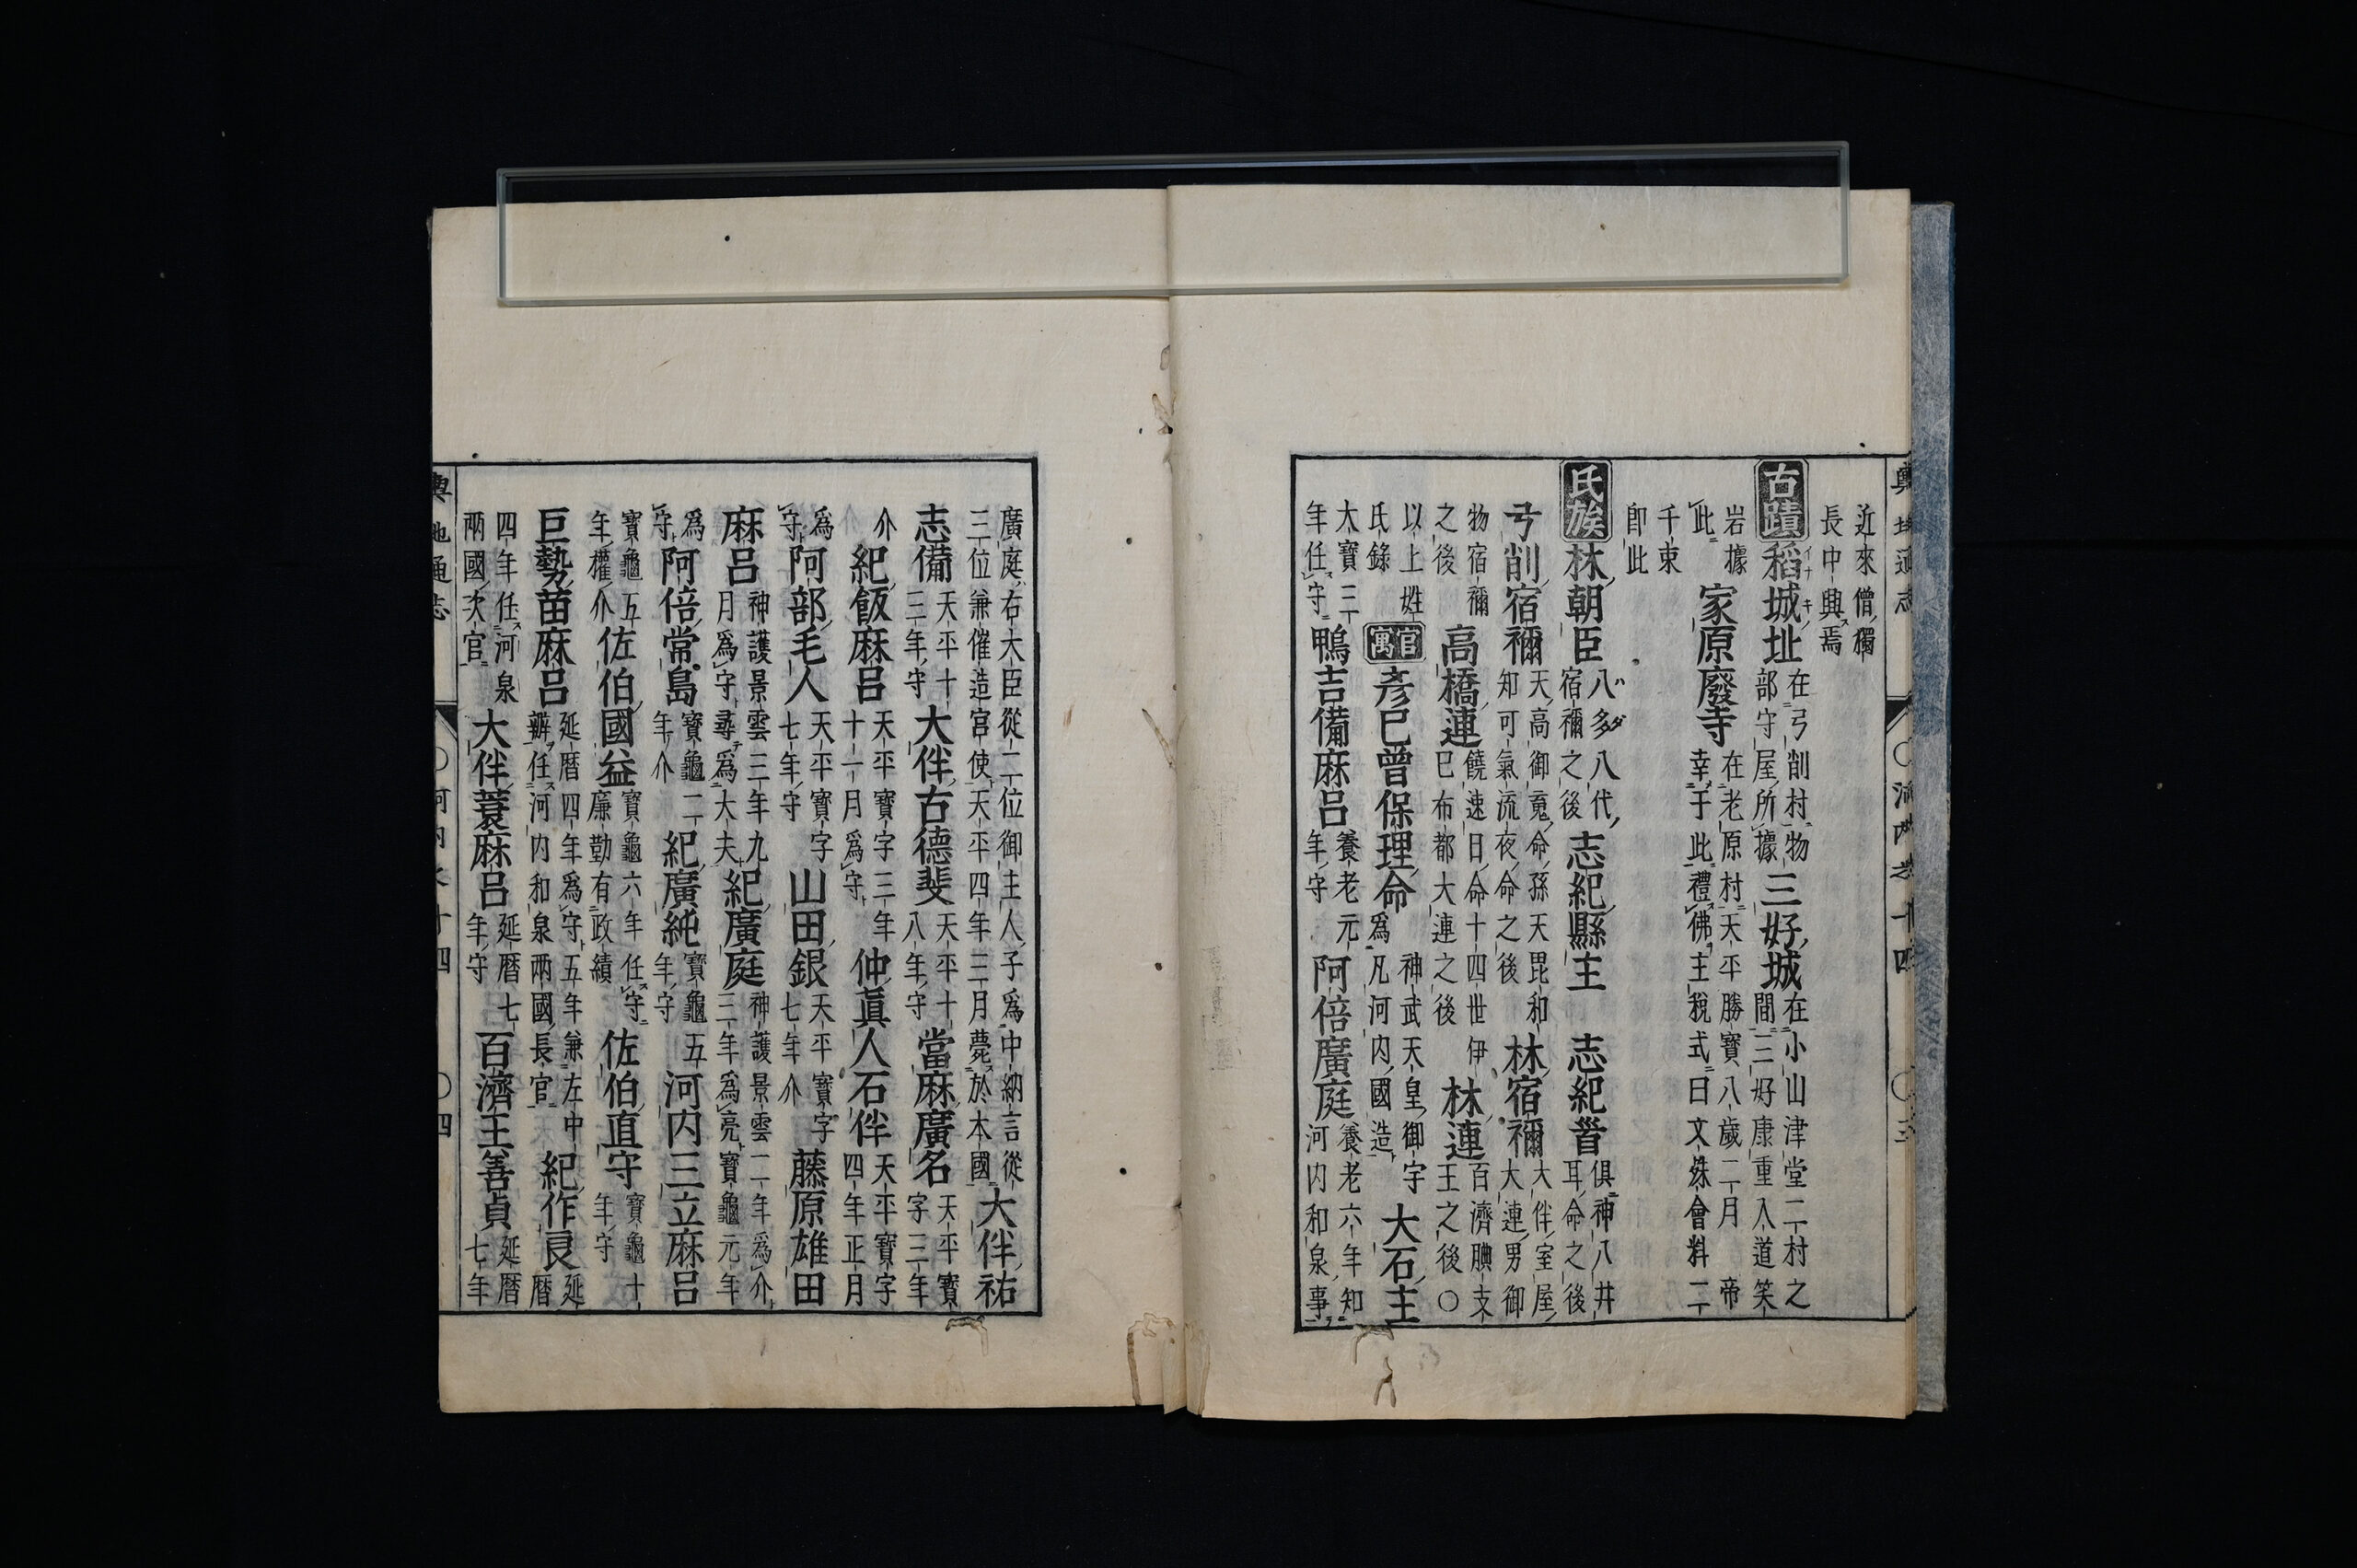 近來僧獨
長中興焉
古蹟 稻城址 在弓削村物部守屋所據 三好城 在小山津堂二村之間三好康重入道笑
岩據此 家原廢寺 在老原村天平勝寶八歲二月 帝幸于此禮佛主税式曰文殊會料二
千束即此
氏族 林朝臣 八多八代宿禰之後 志紀縣主 志紀首 俱神八井耳命之後
弓削宿禰 天高御䰟命孫天毘和知可氣流夜命之後 林宿禰 大伴室屋大連男御
物宿禰之後 高橋連 饒速日命十四世伊己布都大連之後 林連 百濟腆支王之後○
以上姓氏錄 官寓 彥已曾保理命 神武天皇御宇爲凡河内國造 大石主
大寶三年任守 鴨吉備麻呂 養老元年守 阿倍廣庭 養老六年知河内和泉事
廣庭右大臣從二位御主人子爲中納言從三位兼催造宮使天平四年二月薨於本國 大伴祐
志備 天平十三年守 大伴古德斐 天平十八年守 當麻廣名 天平寶字三年
介 紀飯麻呂 天平寶字三年十一月爲守 仲眞人石伴 天平寶字四年正月
爲守 阿部毛人 天平寶字七年守 山田銀 天平寶字七年介 藤原雄田
麻呂 神護景雲三年九月爲守尋爲大夫 紀廣庭 神護景雲二年爲介三年爲亮寶龜元年
爲守 阿倍常島 寶龜二年介 紀廣純 寶龜五年守 河内三立麻呂
寶龜五年權介 佐伯國益 寶龜六年任守廉勤有政績 佐伯直守 寶龜十年守
巨勢苗麻呂 延曆四年爲守五年兼左中辨任河内和泉兩國長官 紀作良 延曆
四年任河泉兩國次官 大伴蓑麻呂 延曆七年守 百濟王善貞 延曆七年